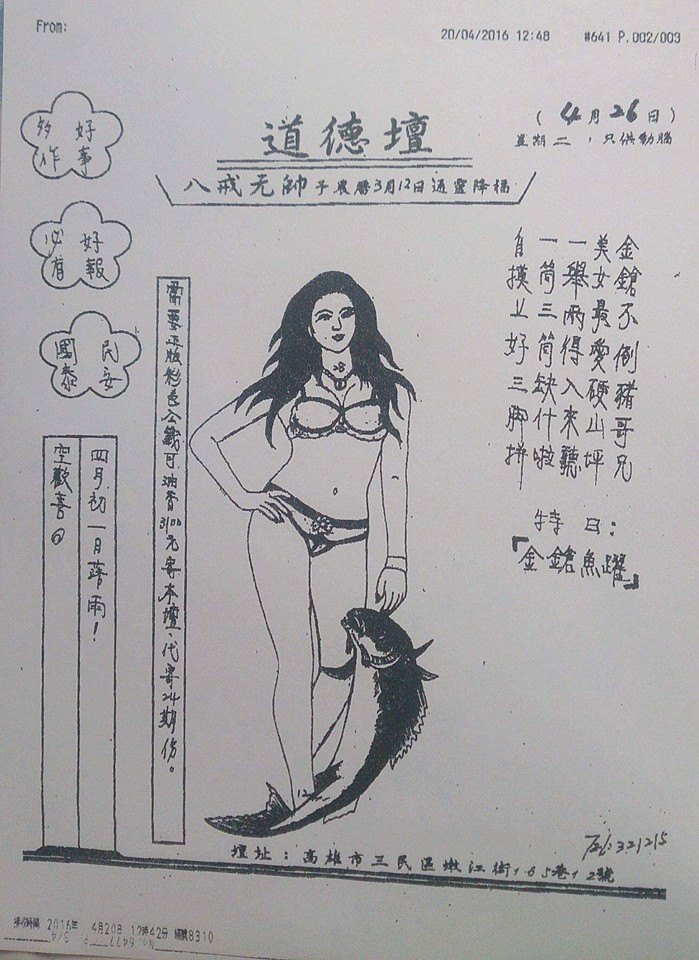 From:
20/04/2016 12:48 #641 P.002/003
(4月26日)
星期二，只供動腦
道德壇
八戒元帥于農曆3月12日通靈降福
好事
多作
好報
必有
民安
國泰
金鎗不倒豬哥兄
美女最愛硬山坪
一舉兩得入來聽
一筒三筒缺什啦
自摸上好三腳拼
特曰：
『金鎗魚躍』
需要正版彩色公籤可油香3100元寄本壇、代寄24期份。
四月初一日落雨！
空歡喜。
12
Tel:321215
壇址：高雄市三民區嫩江街165巷12號
2016年 4月20日 12時42分 8310
No.6477 P. 3/4